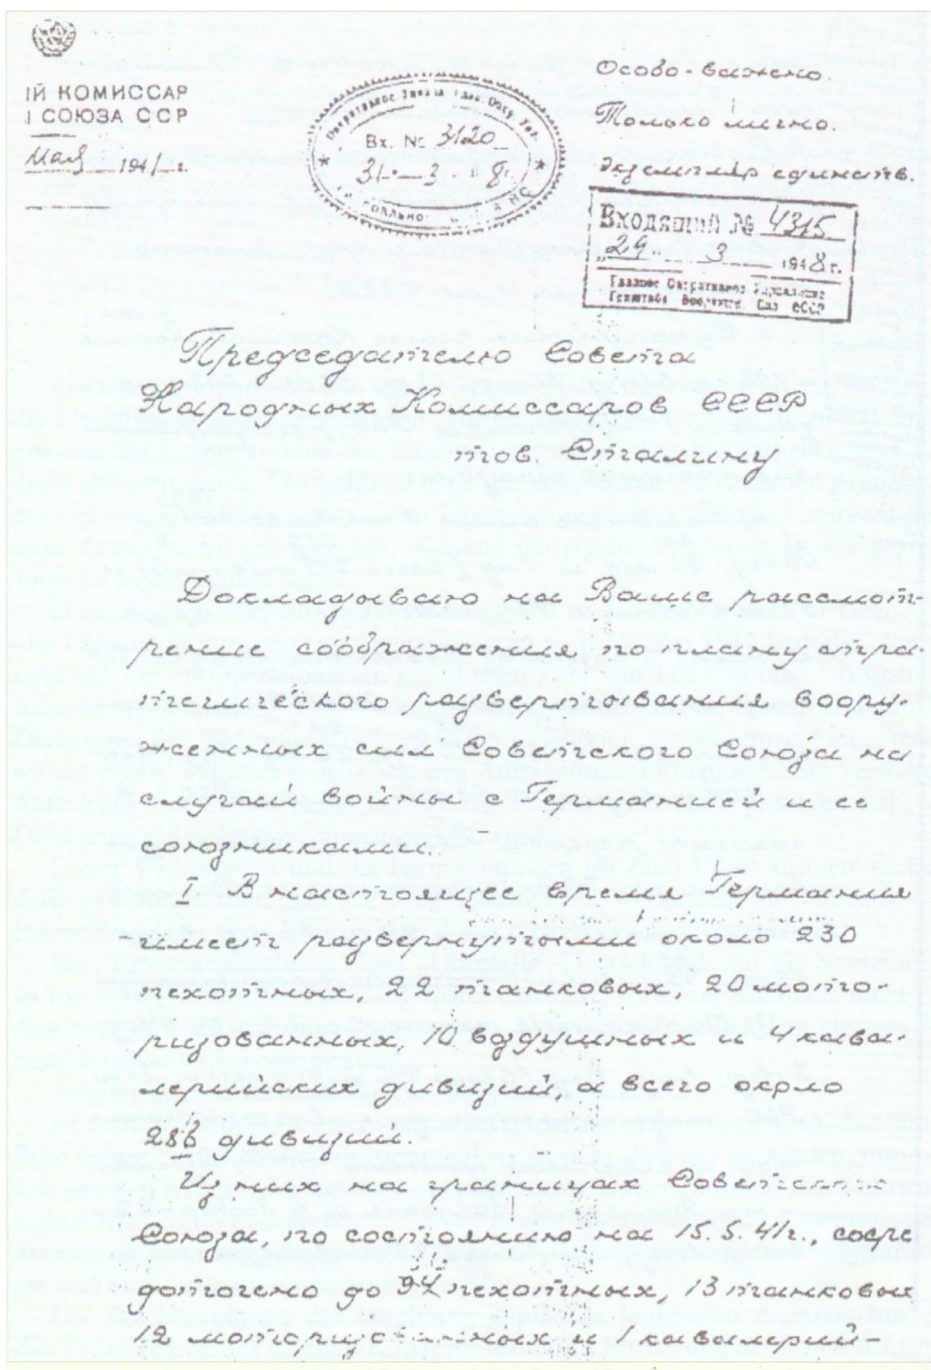 ІЙ КОМИССАР
СОЮЗА ССР
Мая 1941 г.
Вх. № 3120
31 - 3 - 8
Особо-важно.
Только лично.
Экземпляр единств.
ВХОДЯЩИЙ № 4315
29 3 1948 г.
Главное Оперативное Управление
Генштаба Вооружен. Сил СССР
Председателю Совета
Народных Комиссаров СССР
тов. Сталину
Докладываю на Ваше рассмот-
рение соображения по плану стра-
тегического развертывания воору-
женных сил Советского Союза на
случай войны с Германией и ее
союзниками.
I. В настоящее время Германия
имеет развернутыми около 230
пехотных, 22 танковых, 20 мото-
ризованных, 10 воздушных и 4 кава-
лерийских дивизий, а всего около
286 дивизий.
Из них на границах Советского
Союза, по состоянию на 15.5.41г., сосре
доточено до 94 пехотных, 13 танковых
12 моторизованных и 1 кавалерий-